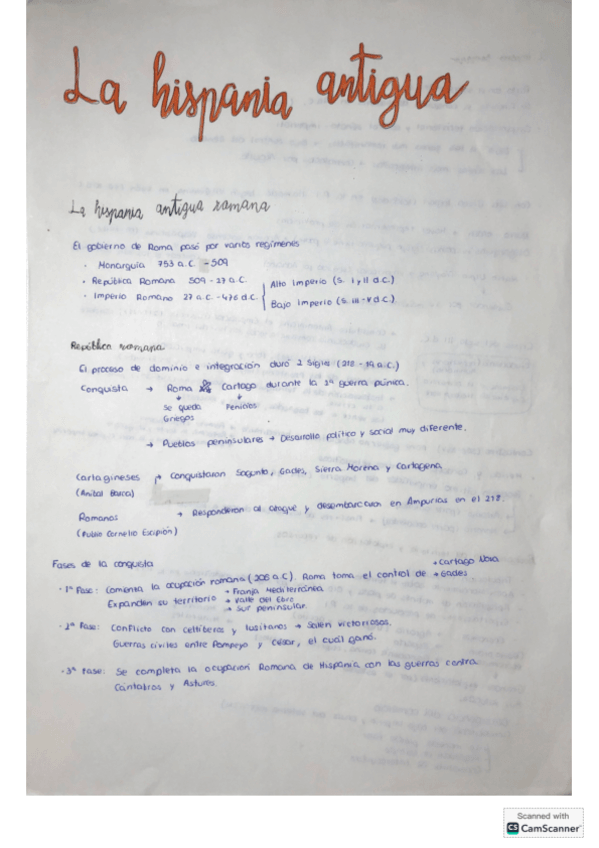 La hispania antigua
La hispania antigua romana
El gobierno de Roma pasó por varios regímenes
· Monarquía 753 a.C. - 509
· República Romana 509 - 27 a.C.
· Imperio Romano 27 a.C. - 476 d.C.
Alto Imperio (S. I y II d.C.)
Bajo Imperio (S. III - V d.C.)
República romana
El proceso de dominio e integración duró 2 siglos (218 - 19 a.C.)
Conquista → Roma Cartago durante la 2ª guerra púnica.
Se queda Fenicios
Griegos
→ Pueblos peninsulares → Desarrollo político y social muy diferente.
Cartagineses → Conquistaron Sagunto, Gades, Sierra Morena y Cartagena
(Aníbal Barca)
Romanos → Respondieron al ataque y desembarcaron en Ampurias en el 218.
(Publio Cornelio Escipión)
Fases de la conquista
→ Cartago Nova
· 1ª Fase: Comienza la ocupación romana (206 a.C). Roma toma el control de → Gades.
Expanden su territorio → Franja Mediterránea
→ Valle del Ebro
→ Sur peninsular
· 2ª Fase: Conflicto con celtíberos y lusitanos → Salen victoriosos.
Guerras civiles entre Pompeyo y César, el cuál ganó.
· 3ª Fase: Se completa la ocupación Romana de Hispania con las guerras contra
Cántabros y Astures.
Scanned with
CS CamScanner